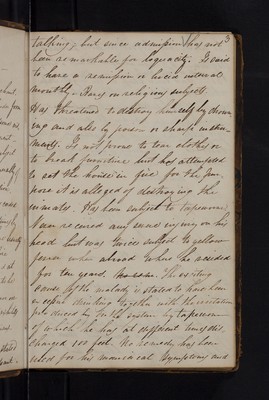 3
talking, but since admission has not
been remarkable for loquacity. Is said
to have a remission or lucid interval
monthly. Raves on religious subjects.
Has threatened to destroy himself by drown
ing and also by poison or sharp instru
ments. Is not prone to tear clothes or
to break furniture but has attempted
to set the house on fire for the pur
pose it is alleged of destroying the
inmates. Has been subject to tapeworm.
Never received any injury on his
head but was twice subject to yellow
fever when abroad where he resided
for ten years. The exciting
cause of the malady is stated to have been
drinking together with the irritation
produced by the system by tapeworm
of which he has at different times
charged 100 feet. No remedy has been
used for his maniacal symptoms and